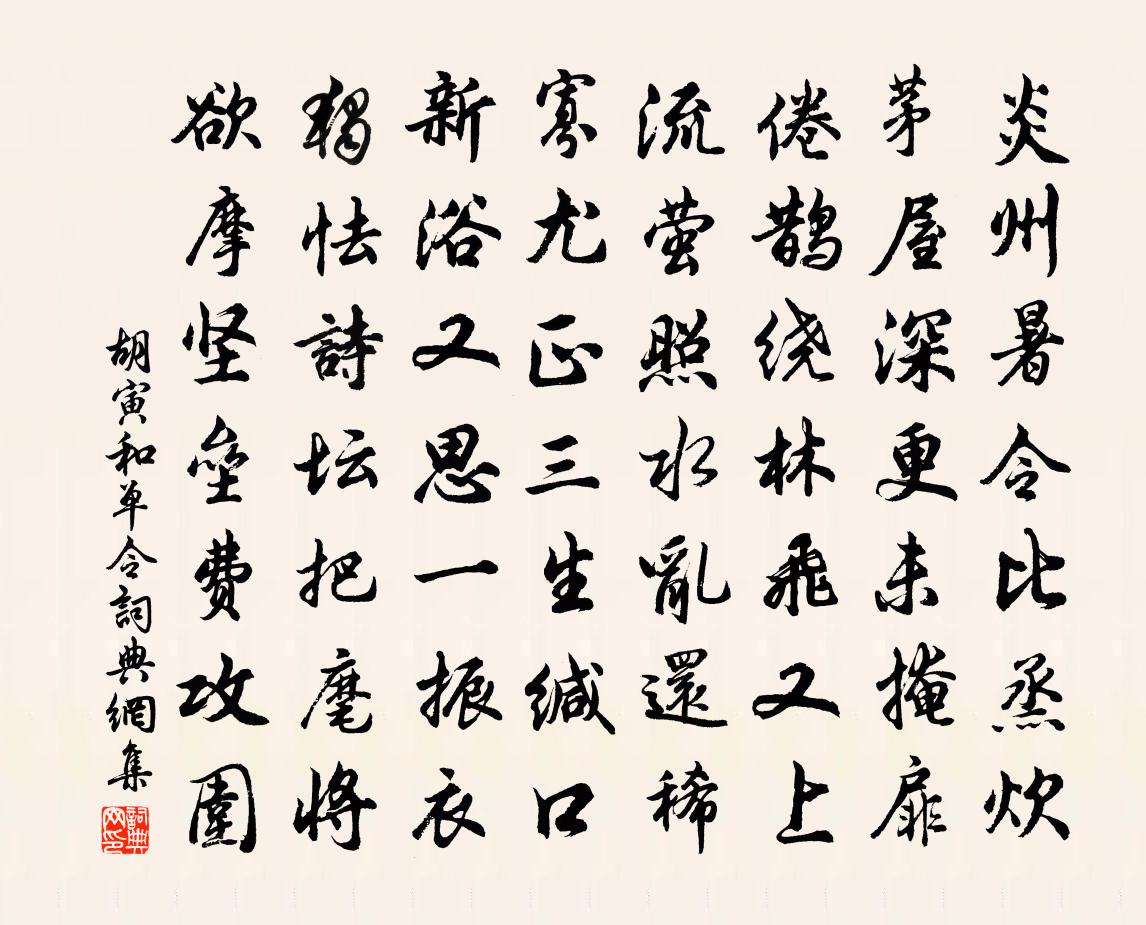 炎州暑令比蒸炊
茅屋深更未掩扉
倦鹊绕林飛又上
流萤照水亂還稀
寡尤正三生缄口
新浴又思一振衣
独怯詩坛把麾将
欲摩坚垒费攻圍
胡寅和单令詞典網集
詞典網印